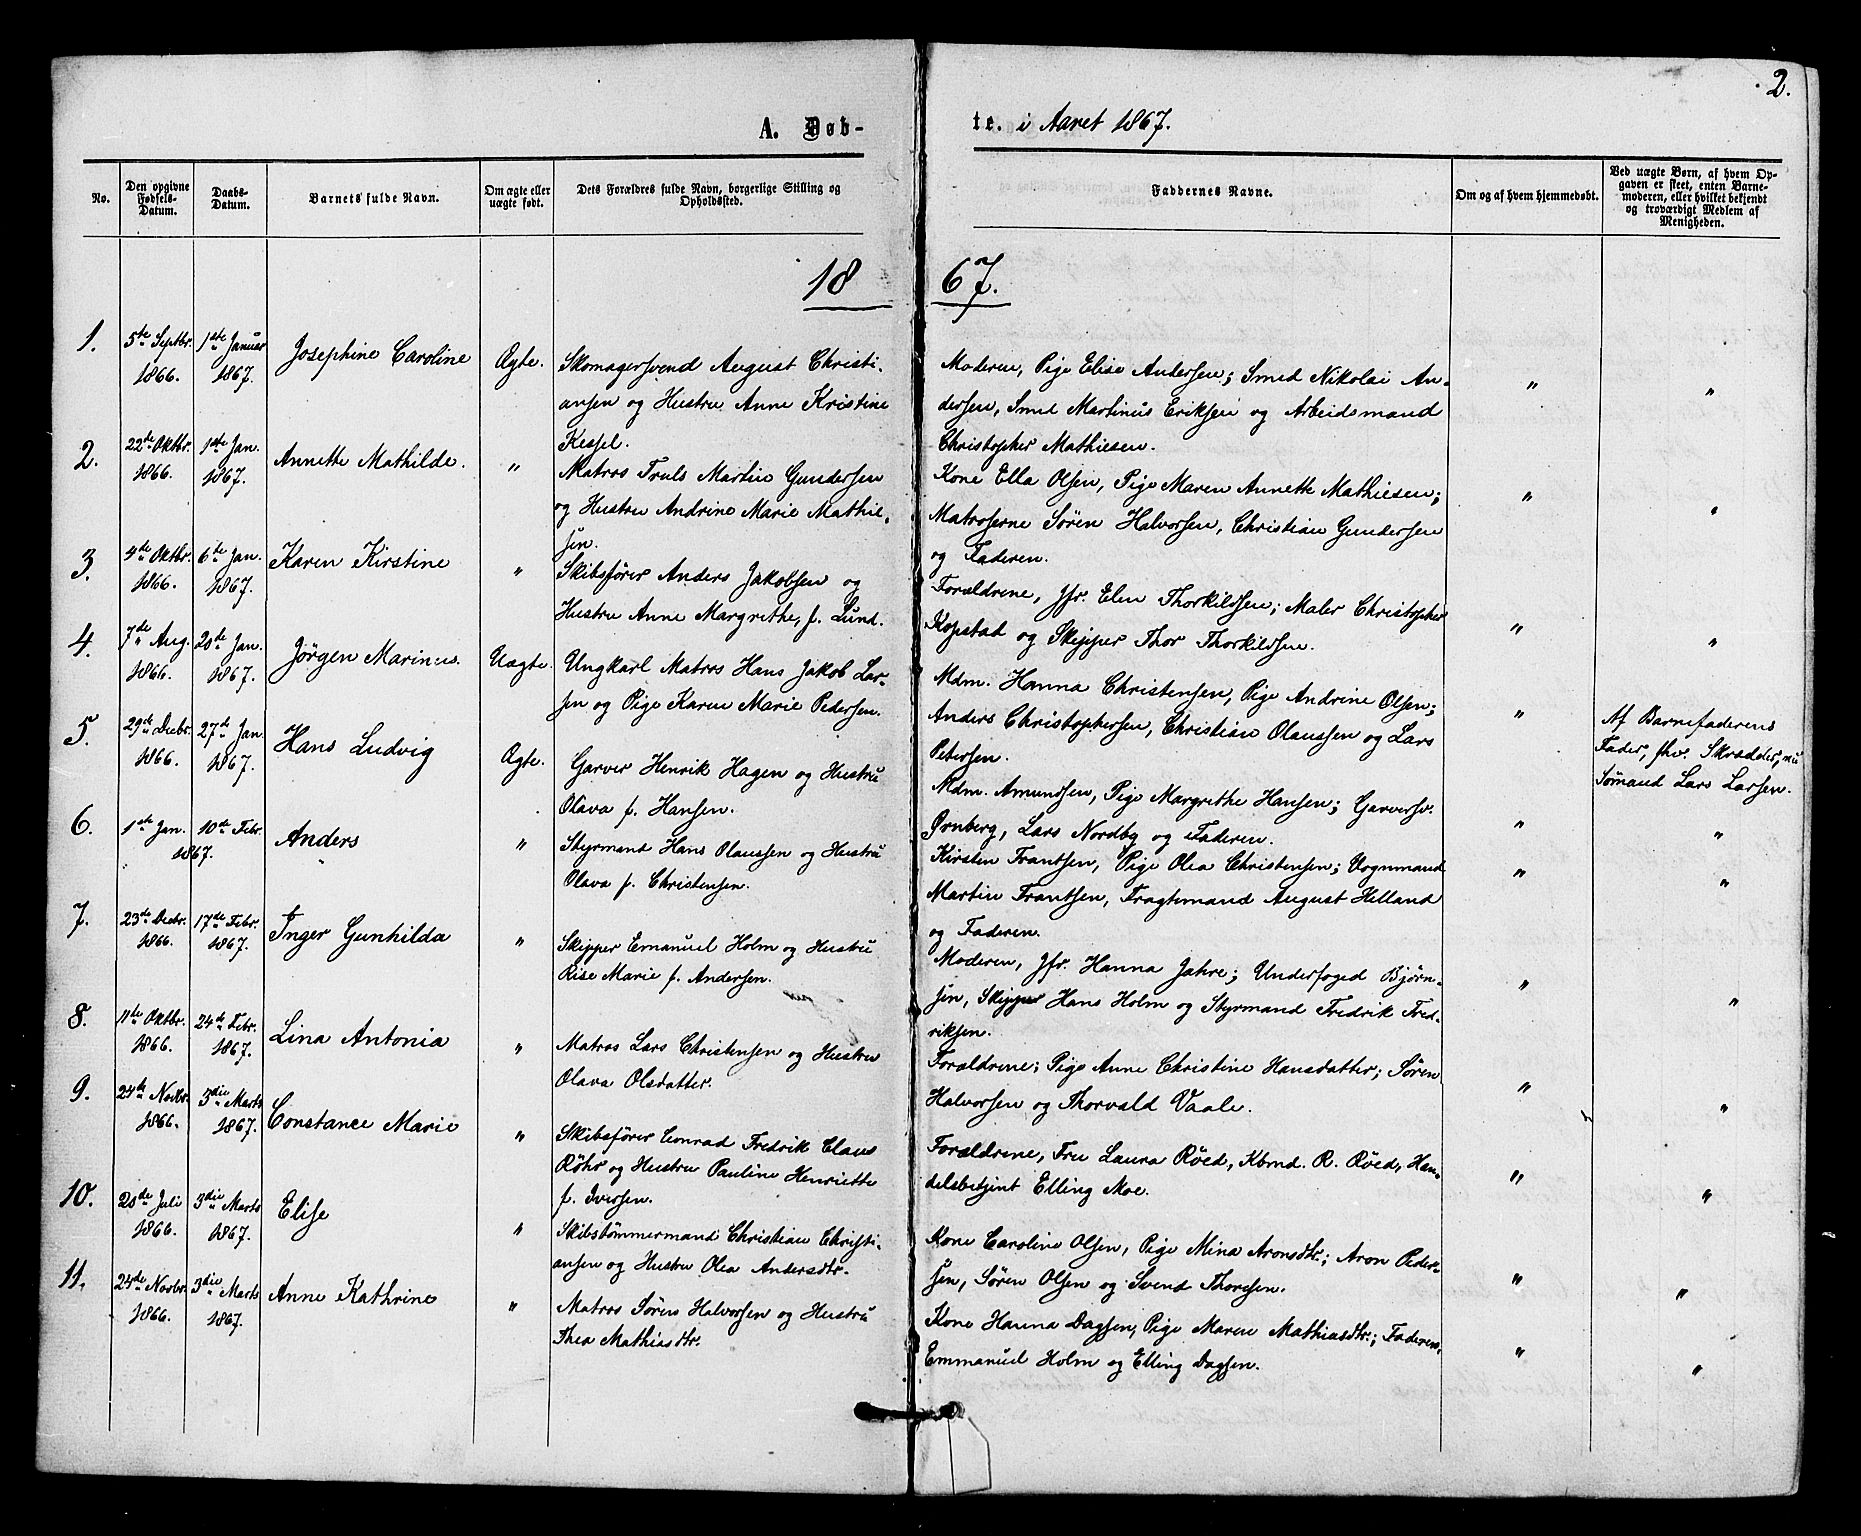 2.
A. Døb-
te. i Aaret 1867.
No.
Den opgivne
Fødsels-
Datum.
Daabs-
Datum.
Barnets fulde Navn.
Om ægte eller
uægte født.
Dets Forældres fulde Navn, borgerlige Stilling og
Opholdssted.
Faddernes Navne.
Om og af hvem hjemmedøbt.
Ved uægte Børn, af hvem Op-
gaven er skeet, enten Barne-
moderen, eller hvilket bekjendt
og troværdigt Medlem af
Menigheden.
18 67.
1.
5te Septbr.
1866.
1ste Januar
1867.
Josephine Caroline
Ægte.
Skomagersvend August Christi-
ansen og Hustru Anne Kristine
Kessel.
Moderen, Pige Elise Andersen; Smed Nikolai An-
dersen, Smed Martinus Eriksen og Arbeidsmand
Christopher Mathiesen.
"
"
2.
22de Oktbr.
1866.
1ste Jan.
1867.
Annette Mathilde.
"
Matros Truls Martin Gundersen
og Hustru Andrine Marie Mathie-
sen.
Kone Ella Olsen, Pige Maren Annette Mathiesen;
Matroserne Sören Halvorsen, Christian Gundersen
og Faderen.
"
"
3.
4de Oktbr.
1866.
6te Jan.
1867.
Karen Kirstine
"
Skibsförer Anders Jakobsen og
Hustru Anne Margrethe, f. Lund.
Forældrene, Jfr. Elen Thorkildsen; Maler Christopher
Kopstad og Skipper Thor Thorkildsen.
"
"
4.
7de Aug.
1866.
20de Jan.
1867.
Jörgen Marinus.
Uægte.
Ungkarl Matros Hans Jakob Lar-
sen og Pige Karen Marie Pedersen.
Mdm. Hanna Christensen, Pige Andrine Olsen;
Anders Christophersen, Christian Olaussen og Lars
Petersen.
"
Af Barnefaderens
Fader, fhv. Skrædder, nu
Sömand Lars Larsen.
5.
29de Decbr.
1866.
27de Jan.
1867.
Hans Ludvig
Ægte.
Garver Henrik Hagen og Hustru
Olava f. Hansen.
Mdm. Amundsen, Pige Margrethe Hansen; Garversv.
Ørnberg, Lars Nordby og Faderen.
"
"
6.
1ste Jan.
10de Febr.
1867.
Anders
"
Styrmand Hans Olaussen og Hustru
Olava f. Christensen.
Kirsten Frantsen, Pige Olea Christensen; Vognmand
Martin Frantsen, Fragtemand August Helland
og Faderen.
"
"
7.
23de Decbr.
1866.
17de Febr.
1867.
Inger Gunhilda
"
Skipper Emanuel Holm og Hustru
Rise Marie f. Andersen.
Moderen, Jfr. Hanna Jahre; Underfoged Bjørn-
sen, Skipper Hans Holm og Styrmand Fredrik Fred-
riksen.
"
"
8.
11te Oktbr.
1866.
24de Febr.
1867.
Lina Antonia
"
Matros Lars Christensen og Hustru
Olava Olsdatter.
Forældrene; Pige Anne Christine Hansdatter; Sören
Halvorsen og Thorvald Vaale.
"
"
9.
24de Novbr.
1866.
3die Marts
1867.
Constance Marie
"
Skibsförer Conrad Fredrik Claus
Röhr og Hustru Pauline Henriette
f. Iversen.
Forældrene, Fru Laura Röed, Kbmd. R. Röed, Han-
delsbetjent Elling Moe.
"
"
10.
20de Juli
1866.
3die Marts
1867.
Elise
"
Skibstömmermand Christian Christi-
ansen og Hustru Olea Andersdtr.
Kone Caroline Olsen, Pige Mina Aronsdtr.; Aron Peder-
sen, Sören Olsen og Svend Thoresen.
"
"
11.
24de Novbr.
1866.
3die Marts
1867.
Anne Kathrine
"
Matros Sören Halvorsen og Hustru
Thea Mathiasdtr.
Kone Hanna Dagsen, Pige Maren Mathiasdtr.; Faderen,
Emmanuel Holm og Elling Dagsen.
"
"